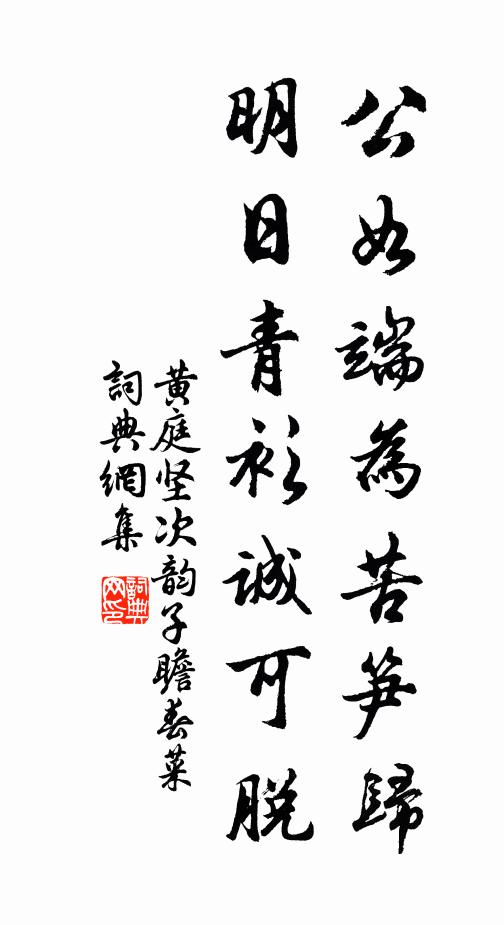 公如端為苦笋歸
明日青衫誠可脫
黃庭坚次韵子瞻春菜
詞典網集
詞典網印